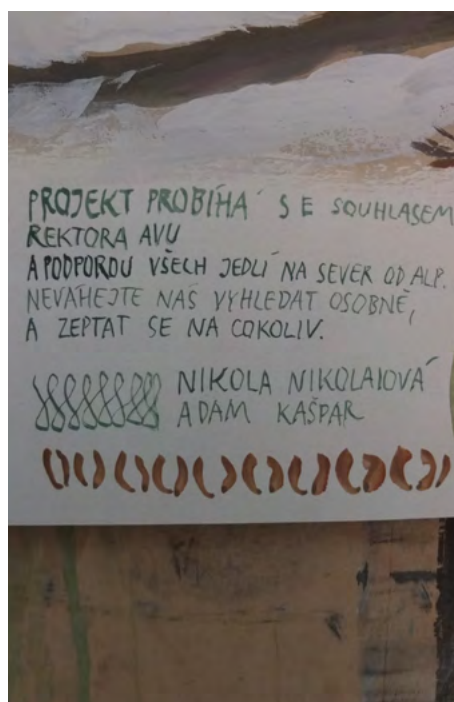 PROJEKT PROBÍHÁ SE SOUHLASEM
REKTORA AVU
A PODPOROU VŠECH JEDLÍ NA SEVER OD ALP.
NEVÁHEJTE NÁS VYHLEDAT OSOBNĚ,
A ZEPTAT SE NA COKOLIV.
NIKOLA NIKOLAIOVÁ
ADAM KAŠPAR